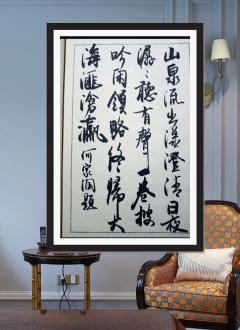 山泉流出漾澄清日夜
潺〻聽有聲一卷披
吟閑領略終歸大
海匯滄瀛何家陶題